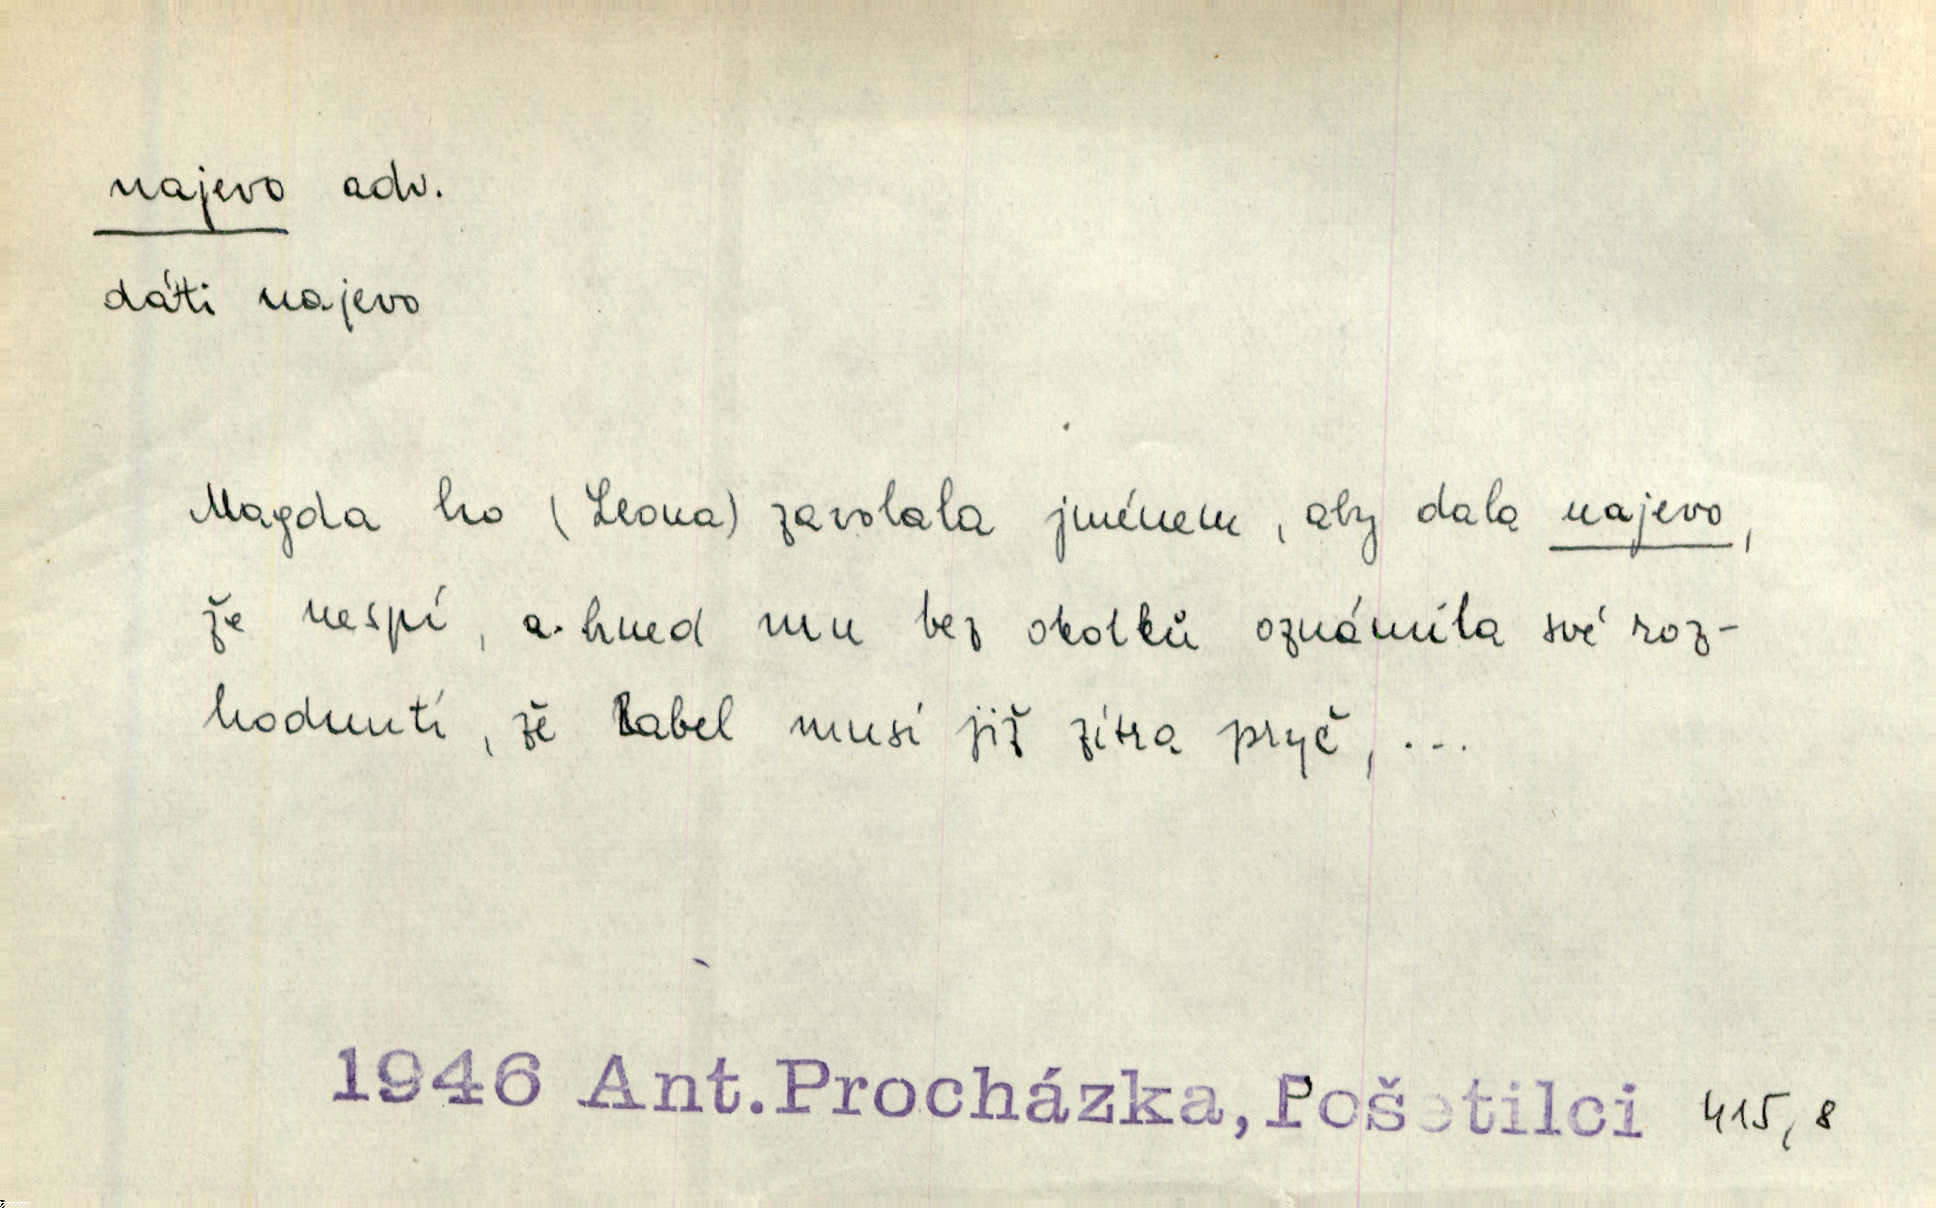 najevo adv.
dáti najevo
Magda ho (Leona) zavolala jménem, aby dala najevo,
že nespí, a hned mu bez okolků oznámila své roz-
hodnutí, že Babel musí již zítra pryč, ...
1946 Ant. Procházka, Pošetilci 415,8